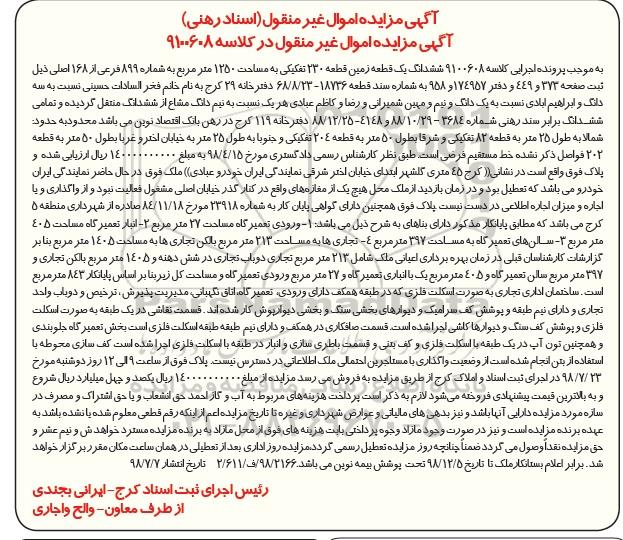 آگهی مزایده اموال غیر منقول (اسناد رهنی)
آگهی مزایده اموال غیر منقول در کلاسه ۹۱۰۰۶۰۸
به موجب پرونده اجرایی کلاسه ۹۱۰۰۶۰۸ ششدانگ یک قطعه زمین قطعه ۲۳۰ تفکیکی به مساحت ۱۲۵۰ متر مربع به شماره ۸۹۹ فرعی از ۱۶۸ اصلی ذیل
ثبت صفحه ۳۷۳ و ۴۴۹ و دفتر ۱۷۴۹۵۷ و ۹۵۸ به شماره سند قطعه ۱۸۷۳۶-۶۸/۸/۲۳ دفترخانه ۲۹ کرج به نام خانم فخر السادات حسینی نسبت به سه
دانگ و ابراهیم ابادی نسبت به یک دانگ و نیم و مهین شمیرانی و رضا و کاظم عبادی هر یک نسبت به نیم دانگ مشاع از ششدانگ منتقل گردیده و تمامی
ششدانگ برابر سند رهنی شماره ۳۶۸۴-۸۸/۱۰/۲۹ و ۴۱۴۸-۸۸/۱۲/۲۵ دفترخانه ۱۱۹ کرج در رهن بانک اقتصاد نوین می باشد محدوده بحدود:
شمالا به طول ۲۵ متر به قطعه ۸۲ تفکیکی و شرقا بطول ۵۰ متر به قطعه ۲۰۴ تفکیکی و جنوبا به طول ۲۵ متر به خیابان اختر و غربا بطول ۵۰ متر به قطعه
۲۰۲ فواصل ذکر نشده خط مستقیم فرضی است. طبق نظر کارشناس رسمی دادگستری مورخ ۹۸/۴/۱۵ به مبلغ ۱۴۰۰۰۰۰۰۰۰۰۰ ریال ارزیابی شده و
پلاک فوق واقع است در نشانی((کرج ۴۵ متری گلشهر ابتدای خیابان اختر شرقی نمایندگی ایران خودرو عبادی)) ملک فوق در حال حاضر نمایندگی ایران
خودرو می باشد که تعطیل بود و در زمان بازدید از ملک محل هیچ یک از مغازه‌های واقع در کنار گذر خیابان اصلی مشغول فعالیت نبود و از واگذاری و یا
اجاره و میزان اجاره اطلاعی در دست نیست. پلاک فوق همچنین دارای گواهی پایان کار به شماره ۲۳۹۱۸ مورخ ۸۴/۱۱/۱۸ صادره از شهرداری منطقه ۵
کرج می باشد که مطابق پایانکار مذکور دارای بناهای به شرح ذیل می باشد: ۱-ورودی تعمیرگاه مساحت ۲۷ متر مربع ۲-انبار تعمیرگاه مساحت ۴۰۵
متر مربع ۳-سالن‌های تعمیرگاه به مساحت ۳۹۷ متر مربع ۴-تجاری ها به مساحت ۲۱۳ متر مربع بالکن تجاری ها به مساحت ۱۴۰۵ متر مربع بنا بر
گزارشات کارشناسان قبلی در زمان بهره برداری اعیانی ملک شامل ۲۱۳ متر مربع تجاری دوباب تجاری در شش دهنه و ۱۴۰۵ متر مربع بالکن تجاری و
۳۹۷ متر مربع سالن تعمیرگاه و ۴۰۵ متر مربع یک باب انباری تعمیرگاه و ۲۷ متر مربع ورودی تعمیرگاه و مساحت کل زیربنا بر اساس پایانکار ۸۴۳ متر مربع
است. ساختمان اداری تجاری به صورت اسکلت فلزی که در طبقه همکف دارای ورودی، تعمیرگاه، اتاق نگهبانی، مدیریت پذیرش، ترخیص و دوباب واحد
تجاری و دارای نیم طبقه و پوشش کف سرامیک و دیوارهای بخشی سنگ و بخشی دیوارپوش کار شده‌اند. قسمت نقاشی در یک طبقه به صورت اسکلت
فلزی و پوشش کف سنگ و دیوارها کاشی اجرا شده است. قسمت صافکاری در همکف و دارای نیم طبقه طبقه اسکلت فلزی است بخش تعمیرگاه جلوبندی
و همچنین تون آپ در یک طبقه با اسکلت فلزی و کف بتنی و قسمت باطری سازی و انبار در طبقه با اسکلت فلزی اجرا شده است کف سازی محوطه با
استفاده از بتن انجام شده است از وضعیت واگذاری با مستأجرین احتمالی ملک اطلاعاتی در دسترس نیست. پلاک فوق از ساعت ۹ الی ۱۲ روز دوشنبه مورخ
۹۸/۷/۲۳ در اجرای ثبت اسناد و املاک کرج از طریق مزایده به فروش می رسد مزایده از مبلغ ۱۴۰۰۰۰۰۰۰۰۰۰ ریال یکصد و چهل میلیارد ریال شروع
و به بالاترین قیمت پیشنهادی فروخته می‌شود لازم به ذکر است پرداخت هزینه‌های مربوط به آب و گاز احمد حق انشعاب و یا حق اشتراک و مصرف در
سازه مورد مزایده دارایی آنها باشد و نیز بدهی های مالیاتی و عوارض شهرداری و غیره تا تاریخ مزایده اعم از اینکه رقم قطعی معلوم شده یا نشده باشد به
عهده برنده مزایده است و نیز در صورت وجود مازاد وجوه پرداختی بابت هزینه های فوق از محل مازاد به برنده مزایده مسترد خواهد ش و نیم عشر و
حق مزایده نقداً وصول می گردد ضمناً چنانچه روز مزایده تعطیل رسمی گردد مزایده روز اداری بعد از تعطیلی در همان ساعت مکان مقرر برگزار خواهد
شد. برابر اعلام بستانکار ملک تا تاریخ ۹۸/۱۲/۵ تحت پوشش بیمه نوین می باشد. ۹۸/۲۱۶۶/ف ۲/۶۱۱ تاریخ انتشار ۹۸/۷/۷
رئیس اجرای ثبت اسناد کرج-ایرانی بجندی
از طرف معاون-والح واجاری